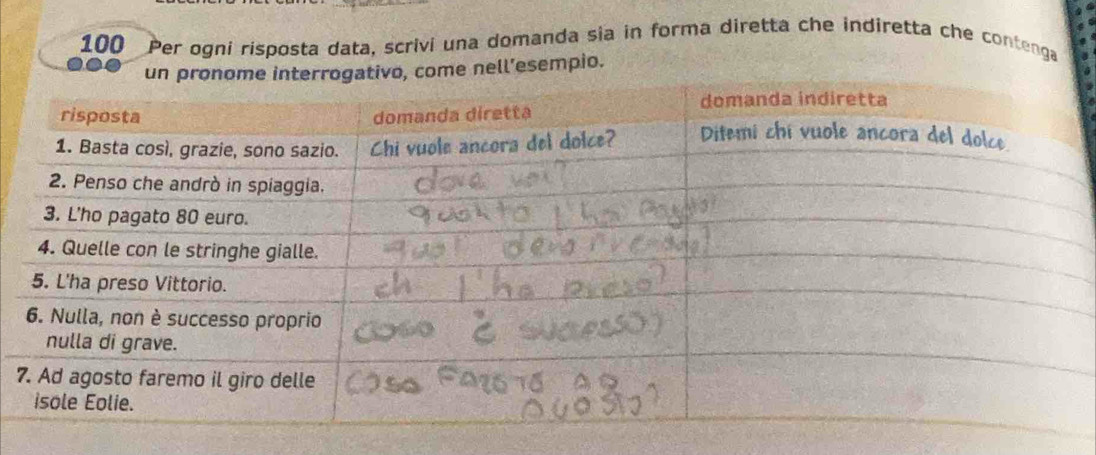 100 Per ogni risposta data, scrivi una domanda sia in forma diretta che indiretta che contenga
un pronome interrogativo, come nell'esempio.
risposta domanda diretta domanda indiretta
1. Basta così, grazie, sono sazio. Chi vuole ancora del dolce? Ditemi chi vuole ancora del dolce
2. Penso che andrò in spiaggia. dove vai?
3. L'ho pagato 80 euro. quanto l'hai
4. Quelle con le stringhe gialle. devo
5. L'ha preso Vittorio. ch l'ha preso?
6. Nulla, non è successo proprio
nulla di grave.
cosa è successo?
7. Ad agosto faremo il giro delle
isole Eolie.
cosa